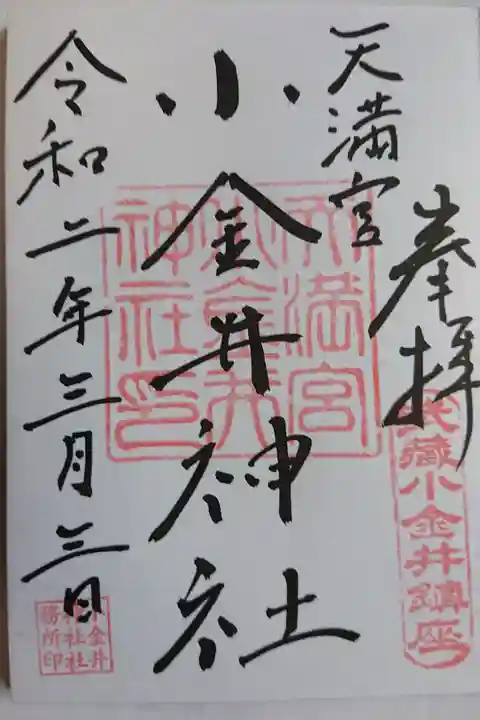 奉拝
武藏小金井鎮座
天満宮
天満宮
小金井
神社印
小金井神社
令和二年三月三日
小金井
神社社
務所印